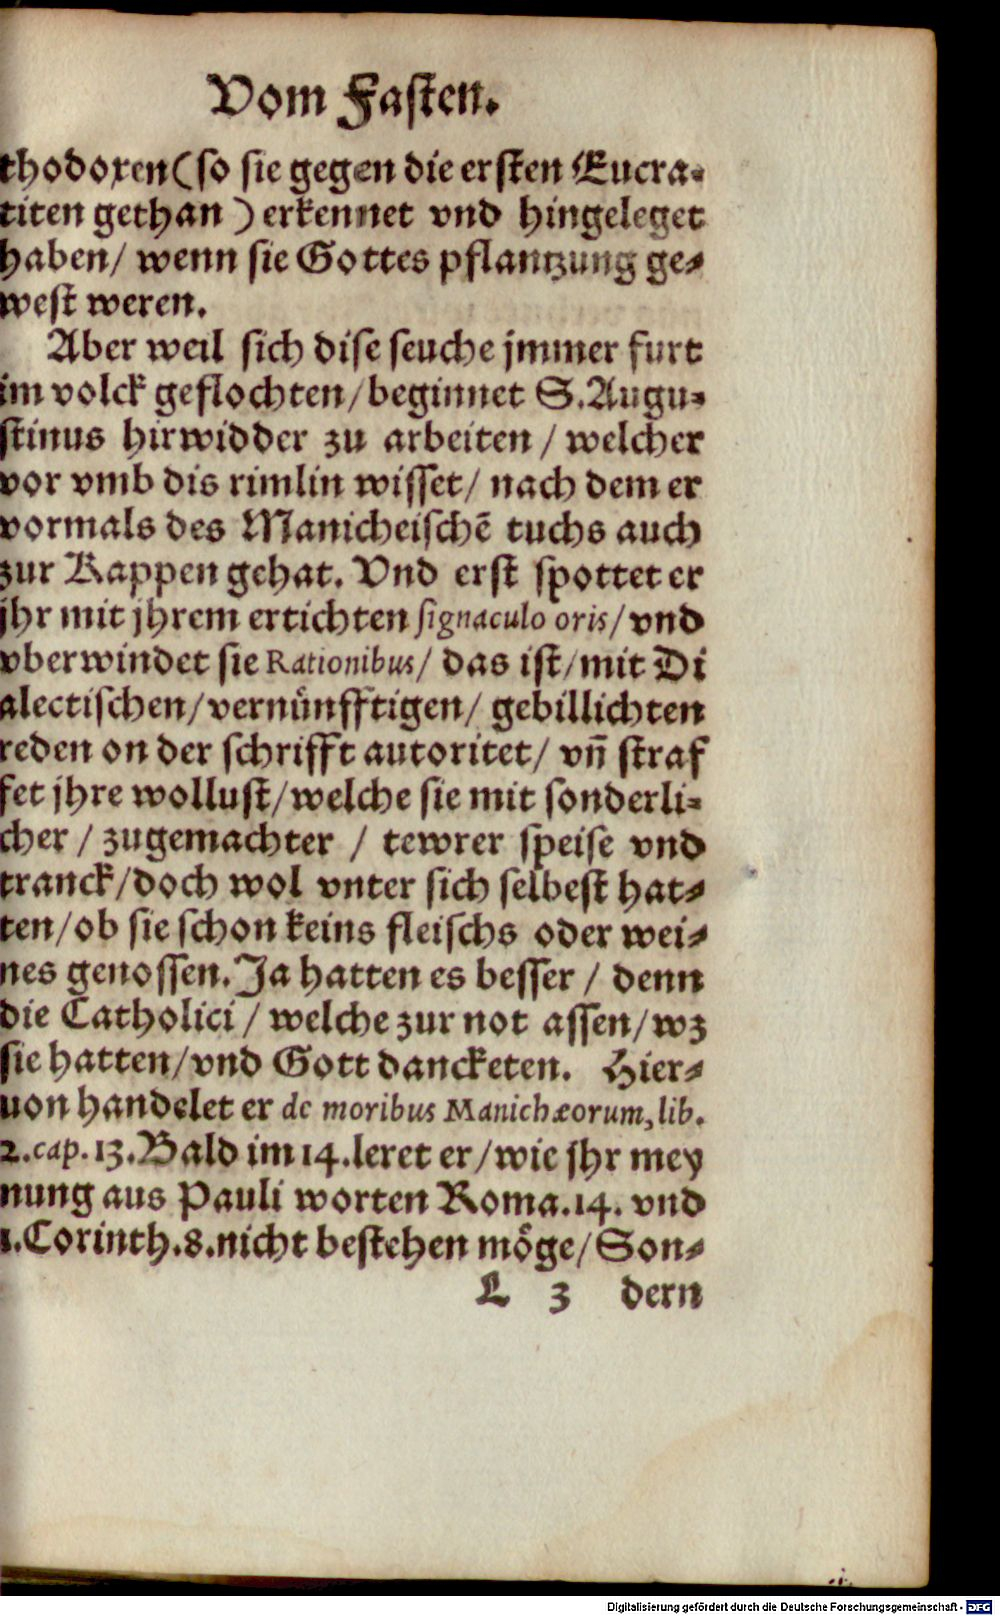 Vom Fasten.
thodoxen (so sie gegen die ersten Eucra-
titen gethan) erkennet vnd hingeleget
haben/ wenn sie Gottes pflantzung ge-
west weren.
Aber weil sich dise seuche jmmer furt
im volck geflochten/ beginnet S. Augu-
stinus hirwidder zu arbeiten / welcher
vor vmb dis rimlin wisset/ nach dem er
vormals des Manicheischē tuchs auch
zur Kappen gehat. Vnd erst spottet er
jhr mit jhrem ertichten signaculo oris/ vnd
vberwindet sie Rationibus/ das ist/ mit Di
alectischen/ vernünfftigen/ gebillichten
reden on der schrifft autoritet/ vn̄ straf
fet jhre wollust/ welche sie mit sonderli-
cher / zugemachter / tewrer speise vnd
tranck/ doch wol vnter sich selbest hat-
ten/ ob sie schon keins fleischs oder wei-
nes genossen. Ja hatten es besser / denn
die Catholici / welche zur not assen/ wz
sie hatten/ vnd Gott dancketen. Hier-
uon handelet er de moribus Manichæorum, lib.
2. cap. 13. Bald im 14. leret er/ wie jhr mey
nung aus Pauli worten Roma. 14. vnd
1. Corinth. 8. nicht bestehen möge/ Son-
L 3 dern
Digitalisierung gefördert durch die Deutsche Forschungsgemeinschaft - DFG